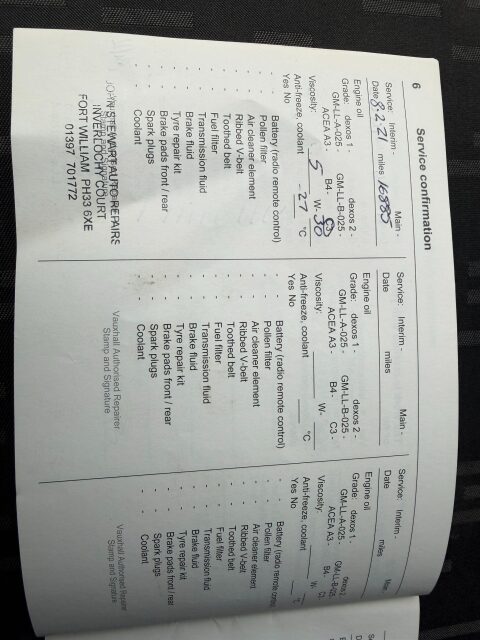 6
Service confirmation
Service: Interim - Main -
Date 8-2-21 miles 16885
Engine oil
Grade: dexos 1 - dexos 2 -
GM-LL-A-025 - GM-LL-B-025 -
ACEA A3 - B4 - C3 -
Viscosity: 5 W- 30
Anti-freeze, coolant -27 °C
Yes No
- - Battery (radio remote control)
- - Pollen filter
- - Air cleaner element
- - Ribbed V-belt
- - Toothed belt
- - Fuel filter
- - Transmission fluid
- - Brake fluid
- - Tyre repair kit
- - Brake pads front / rear
- - Spark plugs
- - Coolant
JOHN STEWART AUTO REPAIRS
INVERLOCHY COURT
FORT WILLIAM PH33 6XE
01397 701772
Service: Interim - Main -
Date miles
Engine oil
Grade: dexos 1 - dexos 2 -
GM-LL-A-025 - GM-LL-B-025 -
ACEA A3 - B4 - C3 -
Viscosity: W-
Anti-freeze, coolant °C
Yes No
- - Battery (radio remote control)
- - Pollen filter
- - Air cleaner element
- - Ribbed V-belt
- - Toothed belt
- - Fuel filter
- - Transmission fluid
- - Brake fluid
- - Tyre repair kit
- - Brake pads front / rear
- - Spark plugs
- - Coolant
Vauxhall Authorised Repairer
Stamp and Signature
Service: Interim - Main -
Date miles
Engine oil
Grade: dexos 1 - dexos 2
GM-LL-A-025 - GM-LL-B-025
ACEA A3 - B4 - C3
Viscosity: W-
Anti-freeze, coolant °C
Yes No
- - Battery (radio remote control)
- - Pollen filter
- - Air cleaner element
- - Ribbed V-belt
- - Toothed belt
- - Fuel filter
- - Transmission fluid
- - Brake fluid
- - Tyre repair kit
- - Brake pads front / rear
- - Spark plugs
- - Coolant
Vauxhall Authorised Repairer
Stamp and Signature